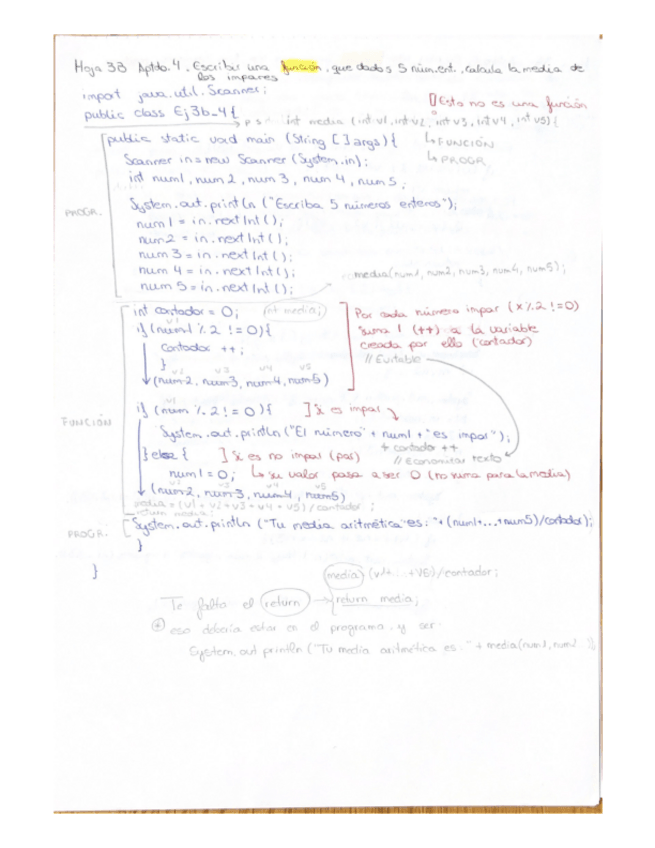 Hoja 3B Aptdo. 4. Escribir una función, que dados 5 núm. ent., calcula la media de
los impares
import java.util.Scanner;
public class Ej3b_4 {
[] Esto no es una función
p s int media (int v1, int v2, int v3, int v4, int v5) {
public static void main (String [] args) {
↳ FUNCIÓN
Scanner in = new Scanner (System.in);
↳ PROGR.
int num1, num 2, num 3, num 4, num 5;
System.out.println ("Escriba 5 números enteros");
PROGR.
num 1 = in.nextInt();
num 2 = in.nextInt();
num 3 = in.nextInt();
num 4 = in.nextInt();
media(num1, num2, num3, num4, num5);
num 5 = in.nextInt();
int contador = 0; int media;
Por cada número impar (x % 2 != 0)
v1
if (num1 % 2 != 0) {
suma 1 (++) a la variable
contador ++;
creada por ello (contador)
}
// Evitable
v2 v3 v4 v5
(num 2, num 3, num 4, num 5)
if (num % 2 != 0) { ] Si es impar
FUNCIÓN
System.out.println ("El número" + num1 + "es impar");
+ contador ++
} else { ] Si es no impar (par) // Economizar texto
num 1 = 0; ↳ su valor pasa a ser 0 (no suma para la media)
v2 v3 v4 v5
(num 2, num 3, num 4, num 5)
media = (v1 + v2 + v3 + v4 + v5) / contador;
return media;
PROGR. System.out.println ("Tu media aritmética es: " + (num1+...+num5)/contador);
}
}
media (v1+...+V5)/contador;
Te falta el return → return media;
* eso debería estar en el programa, y ser:
System.out println ("Tu media aritmética es: " + media(num1, num2..